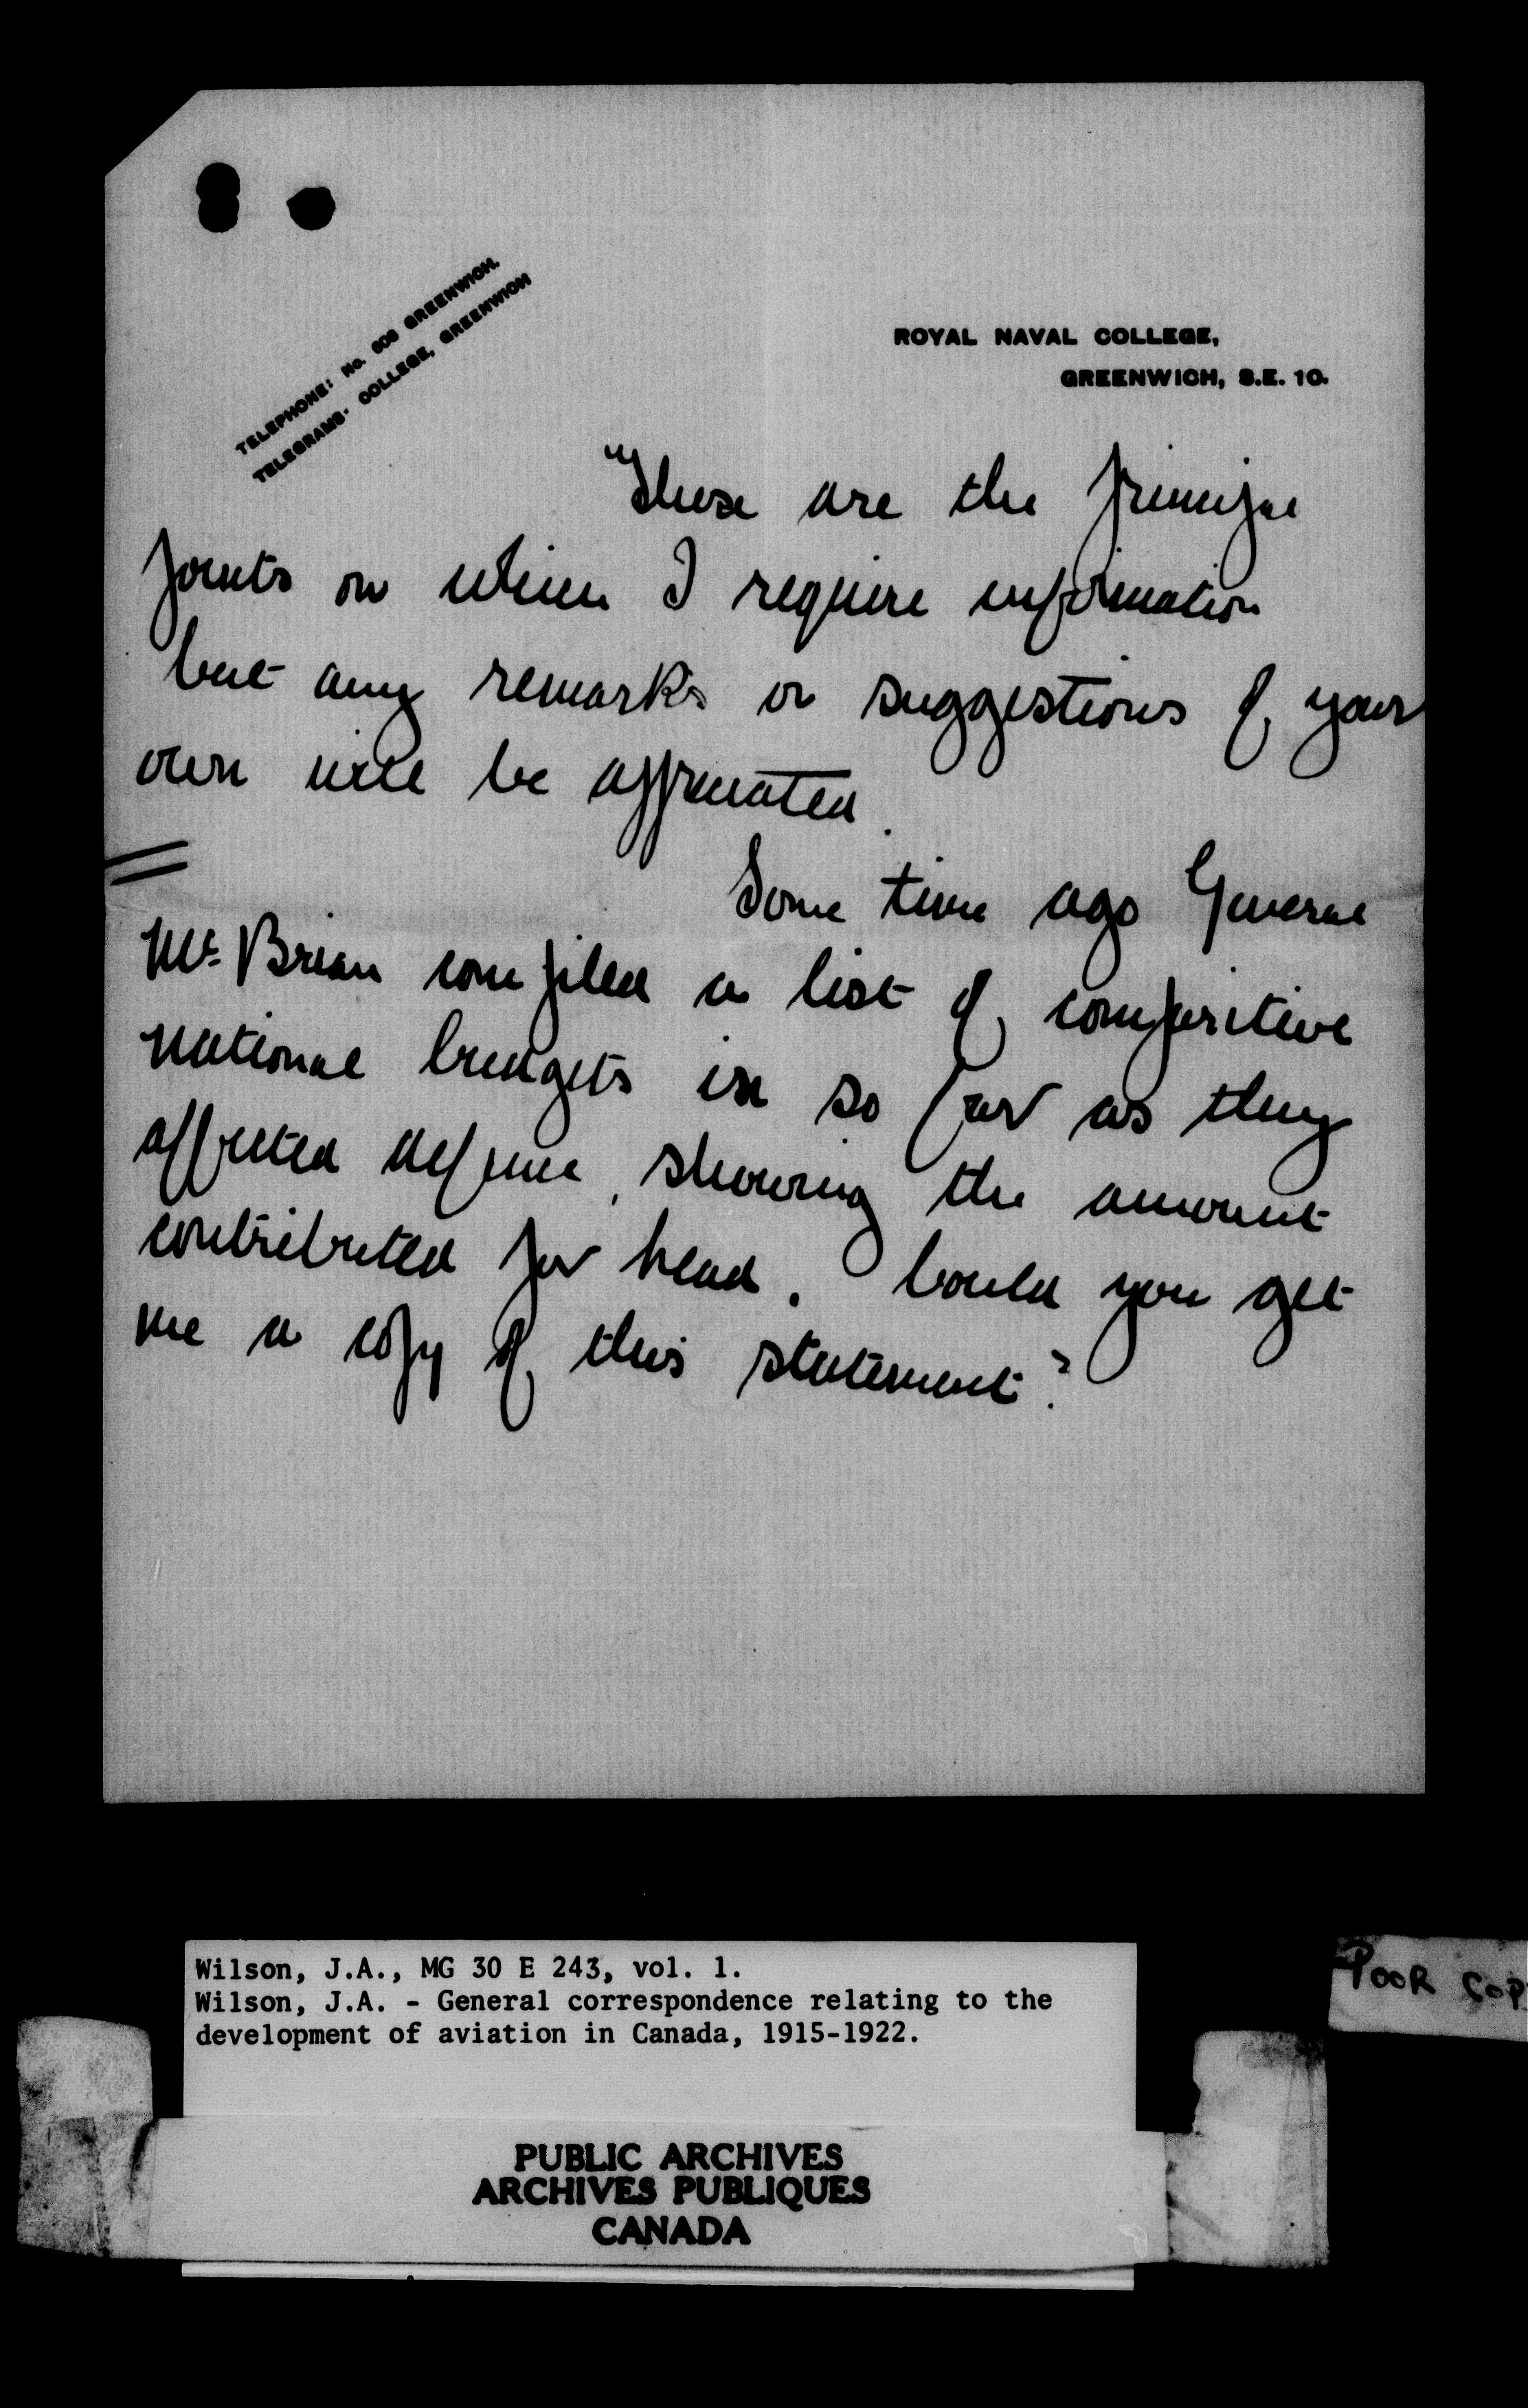 TELEPHONE: No. 608 GREENWICH.
TELEGRAMS· COLLEGE, GREENWICH
ROYAL NAVAL COLLEGE,
GREENWICH, S.E. 10.
These are the principal
points on which I require information
but any remarks or suggestions of your
own will be appreciated.
Some time ago General
McBrian compiled a list of comparitive
national budgets in so far as they
affected defence, showing the amount
contributed per head. Could you get
me a copy of this statement?
Wilson, J.A., MG 30 E 243, vol. 1.
Wilson, J.A. - General correspondence relating to the
development of aviation in Canada, 1915-1922.
POOR COP
PUBLIC ARCHIVES
ARCHIVES PUBLIQUES
CANADA